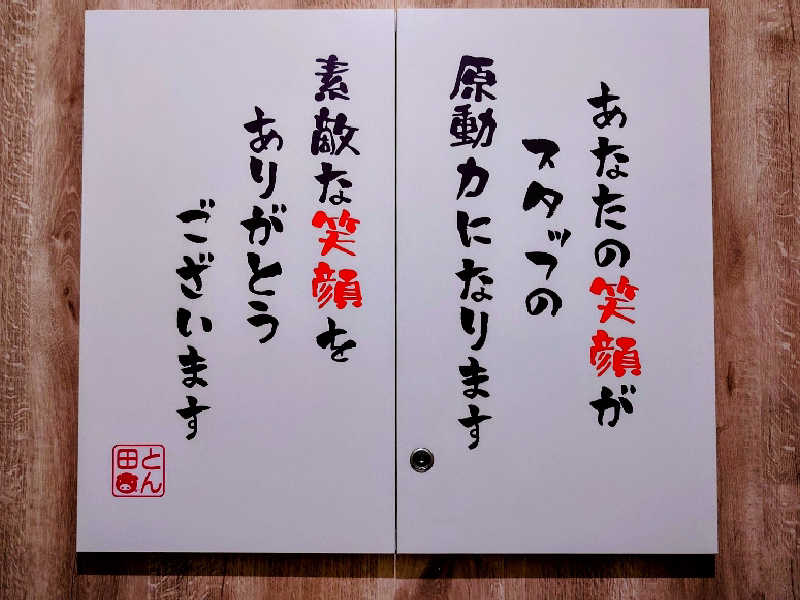 あなたの笑顔が
スタッフの
原動力になります
素敵な笑顔を
ありがとう
ございます
とん
田